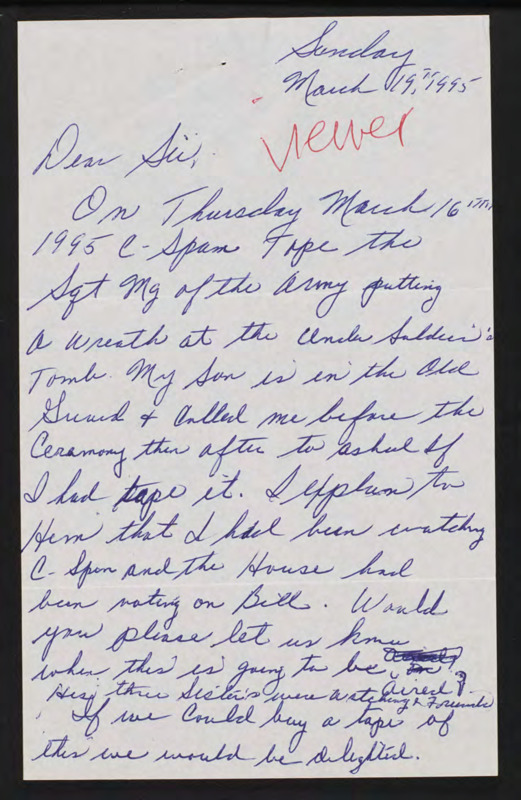 Sunday
March 19,th 1995
viewer
Dear Sir,
On Thursday March 16th
1995 C-Span Tape the
Sgt Mg of the Army putting
a wreath at the Soldier's
Tomb. My Son is in the Old
Guard & Called me before the
Ceramony then after to asked If
I had tape it. I explain to
Him that I had been watching
C-Span and the House had
been voting on Bill. Would
you please let us know
when this is going to be aired?
His three Sister's were watching & Friends
If we could buy a tape of
this we would be delighted.